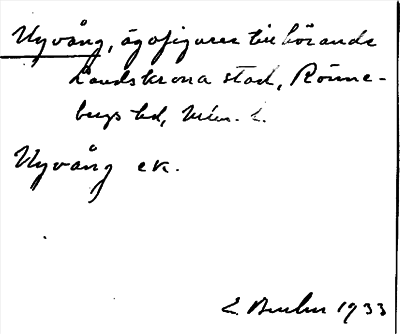 Nyvång, ägofigurer tillhörande
Landskrona stad, Rönne-
bergs hd, Mlm. l.
Nyvång ek.
E 1933